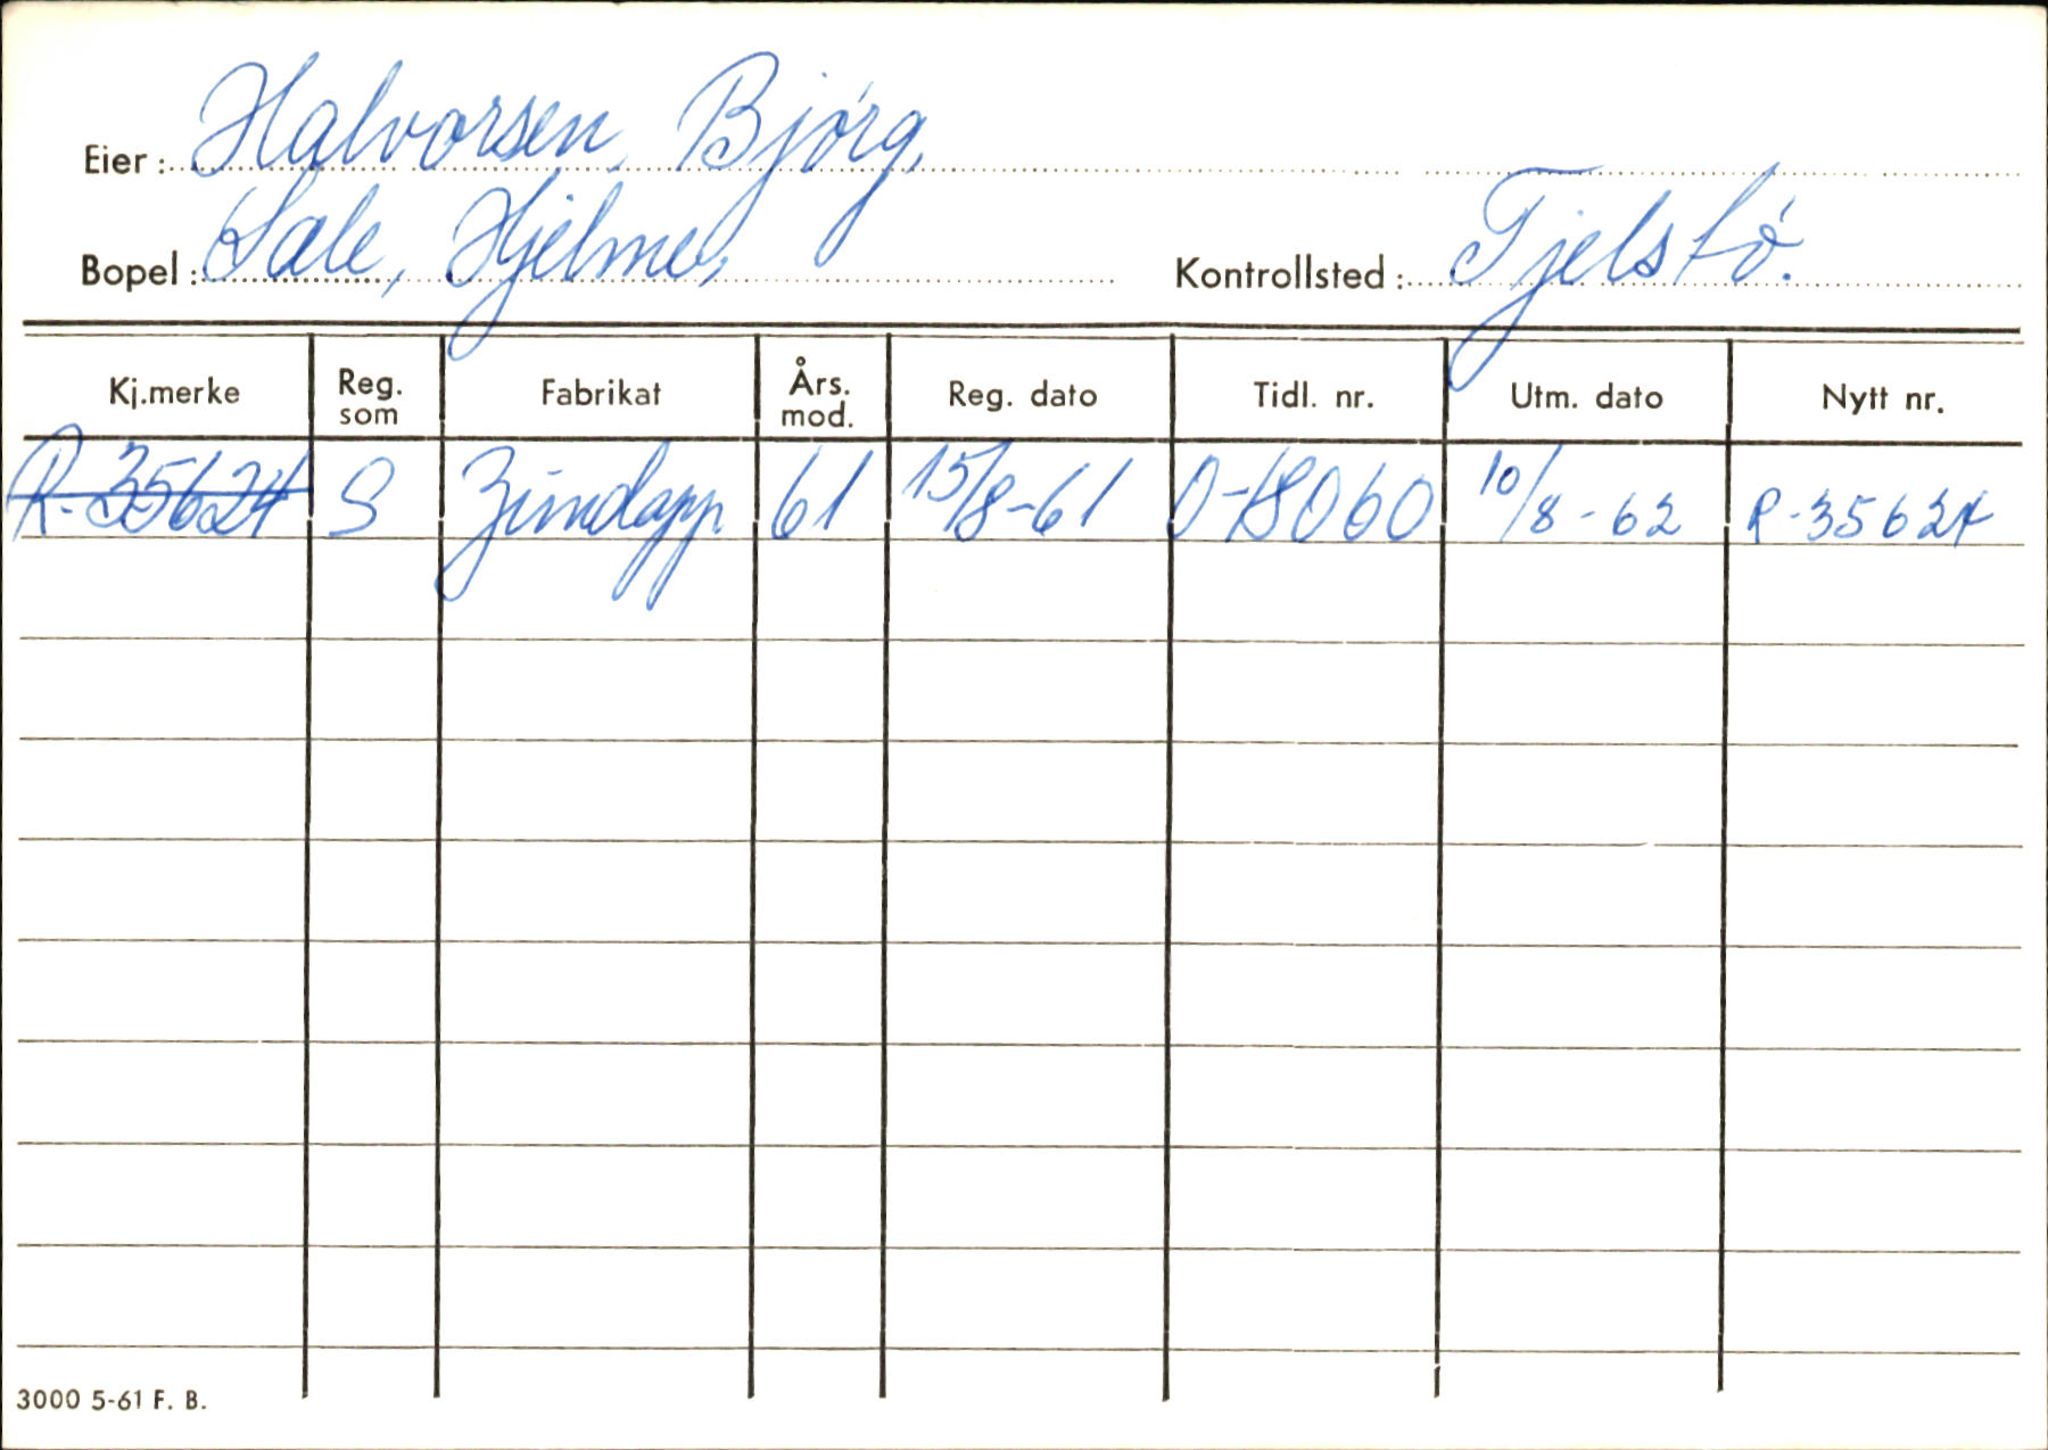 Eier: Halvorsen, Bjørg.
Bopel: Sæle, Hjelme, Kontrollsted: Tjelstø.
Kj.merke Reg. som Fabrikat Års. mod. Reg. dato Tidl. nr. Utm. dato Nytt nr.
R-35624 S Zündapp. 61 15/8-61 O-18060 10/8-62 R-35624
3000 5-61 F. B.